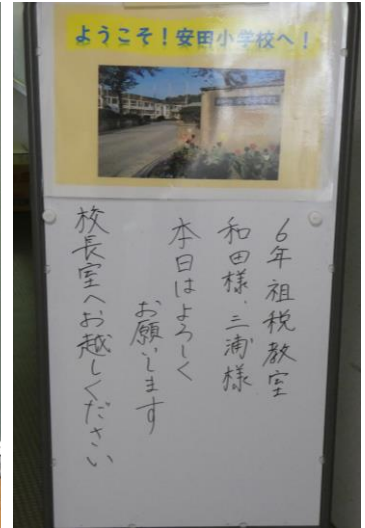 ようこそ！安田小学校へ！
6年租税教室
和田様、三浦様
本日はよろしく
お願いします
校長室へお越しください